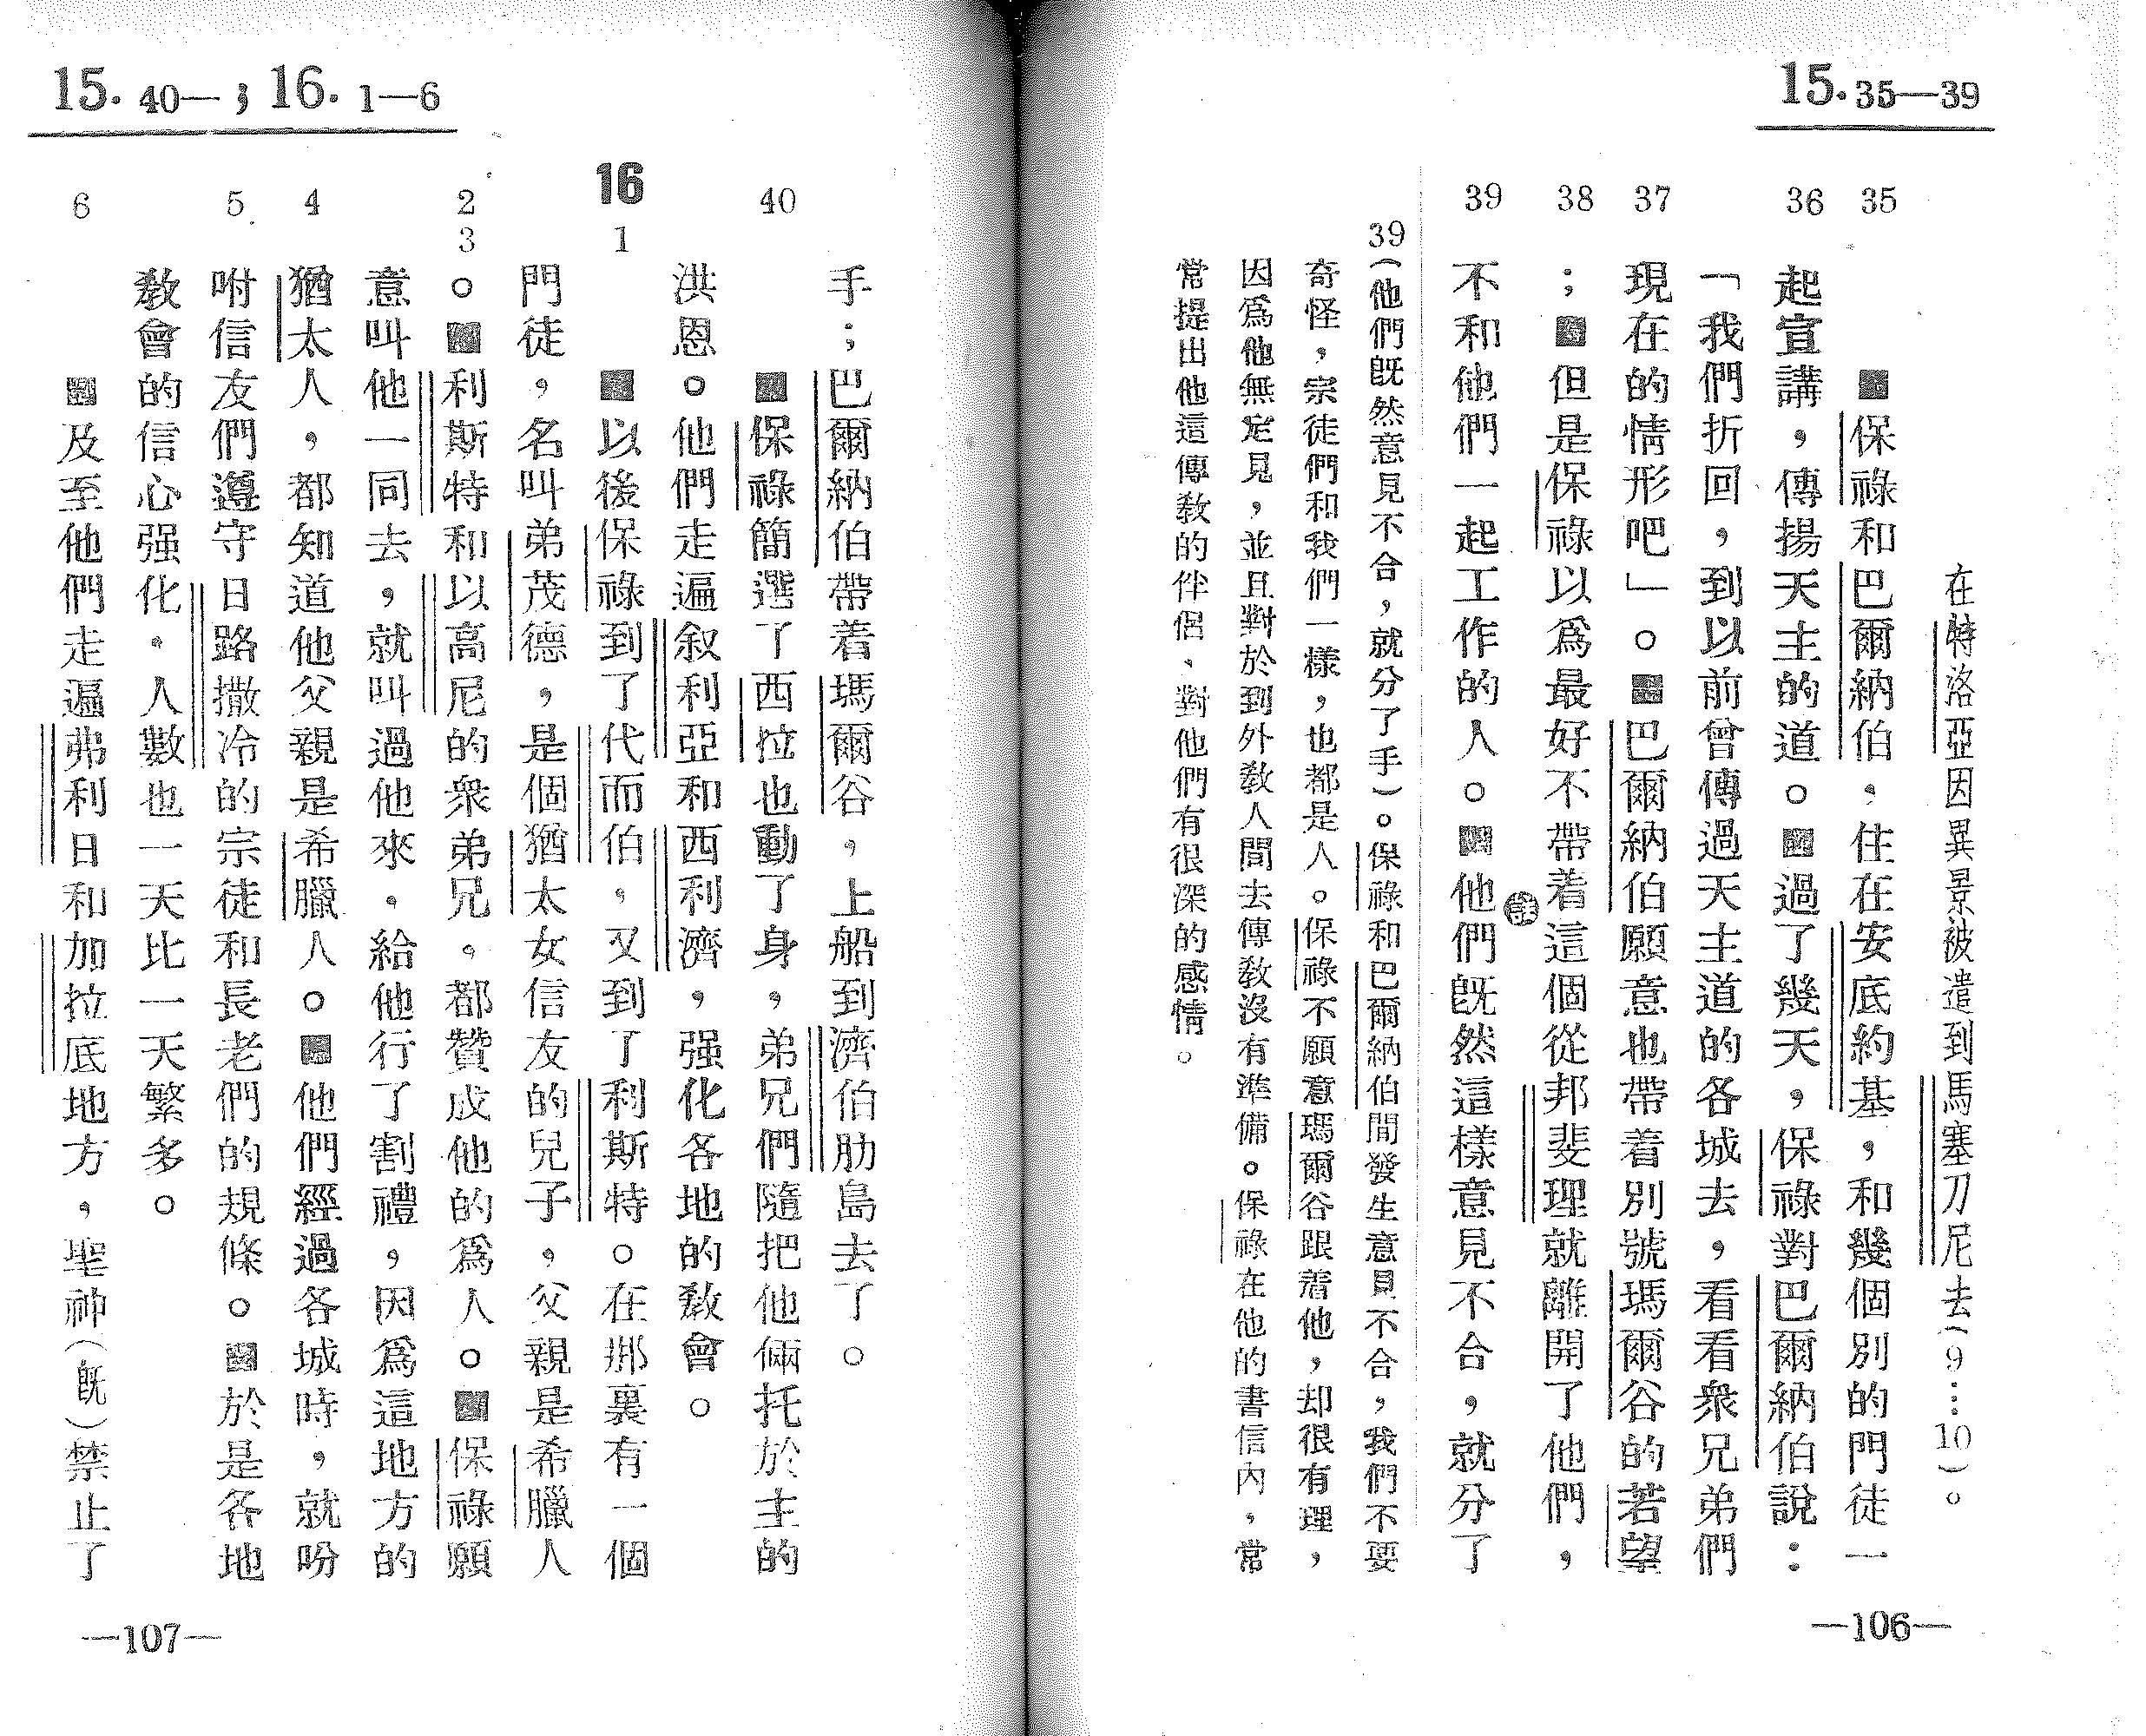 15. 35—39
在特洛亞因異景被遣到馬塞刀尼去(9…10)。
35 保祿和巴爾納伯，住在安底約基，和幾個別的門徒一
36 起宣講，傳揚天主的道。過了幾天，保祿對巴爾納伯說：
「我們折回，到以前曾傳過天主道的各城去，看看衆兄弟們
37 現在的情形吧」。巴爾納伯願意也帶着別號瑪爾谷的若望
38 ；但是保祿以爲最好不帶着這個從邦斐理就離開了他們，
39 不和他們一起工作的人。他們旣然這樣意見不合，就分了
註
39(他們旣然意見不合，就分了手)。保祿和巴爾納伯間發生意見不合，我們不要
奇怪，宗徒們和我們一樣，也都是人。保祿不願意瑪爾谷跟着他，却很有理，
因爲他無定見，並且對於到外敎人間去傳敎沒有準備。保祿在他的書信內，常
常提出他這傳敎的伴侶、對他們有很深的感情。
—106—
15. 40—；16. 1—6
手；巴爾納伯帶着瑪爾谷，上船到濟伯肋島去了。
40 保祿簡選了西拉也動了身，弟兄們隨把他倆托於主的
洪恩。他們走遍叙利亞和西利濟，强化各地的敎會。
16 1 以後保祿到了代而伯，又到了利斯特。在那裏有一個
門徒，名叫弟茂德，是個猶太女信友的兒子，父親是希臘人
2 3 。利斯特和以高尼的衆弟兄。都贊成他的爲人。保祿願
意叫他一同去，就叫過他來。給他行了割禮，因爲這地方的
4 猶太人，都知道他父親是希臘人。他們經過各城時，就吩
5 咐信友們遵守日路撒冷的宗徒和長老們的規條。於是各地
敎會的信心强化。人數也一天比一天繁多。
6 及至他們走遍弗利日和加拉底地方，聖神(旣)禁止了
—107—